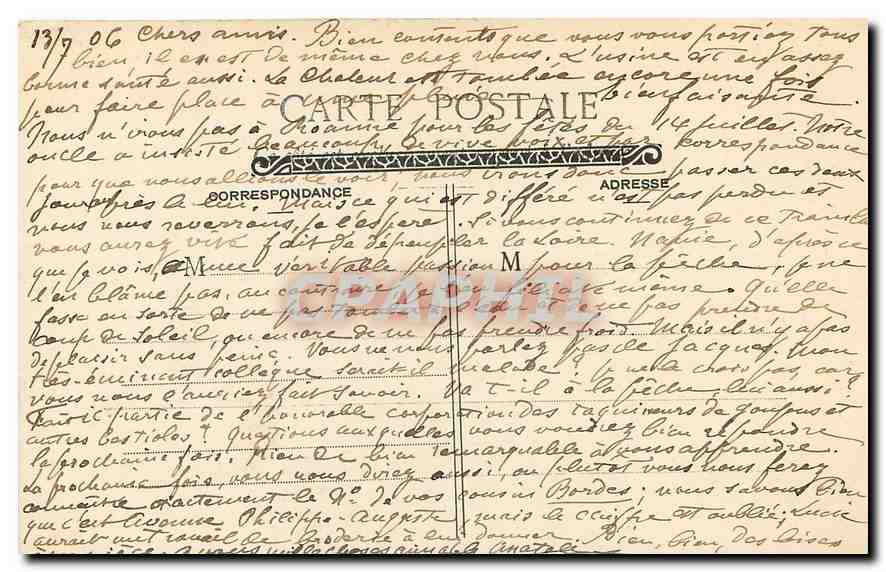 13/7 06 Chers amis. Bien contents que vous vous portiez tous
bien, il en est de même chez nous. L'usine est en assez
bonne santé aussi. La chaleur est tombée encore une fois
pour faire place à une pluie bienfaisante.
CARTE POSTALE
Nous n'irons pas à Roanne pour les fêtes du 14 juillet. Notre
oncle a insisté beaucoup, de vive voix et par correspondance
pour que nous allions le voir. Nous irons donc passer ces deux
CORRESPONDANCE
ADRESSE
jours près de lui. Mais ce qui est différé n'est pas perdu et
nous nous reverrons, je l'espère. Si vous continuez de ce train là
vous aurez vite fait de dépeupler la Loire. Mamie, d'après ce
M
M
que je vois, a une véritable passion pour la pêche, je ne
l'en blâme pas, au contraire, je l'en félicite même. Qu'elle
CPAPHIL
fasse en sorte de ne pas tomber à l'eau et de ne pas prendre de
coup de soleil, ou encore de ne pas prendre froid. Mais il n'y a pas
de plaisir sans peine. Vous ne nous parlez pas de Jacques. Mon
très-éminent collègue serait-il malade? je ne le crois pas, car
vous nous l'auriez fait savoir. Va t-il à la pêche lui aussi?
Fait-il partie de l'honorable corporation des taquineurs de goujons et
autres bestioles? Questions auxquelles vous voudrez bien répondre
la prochaine fois. Rien de bien remarquable à vous apprendre.
La prochaine fois, vous nous direz aussi, ou plutôt vous nous ferez
connaître exactement le No. de vos cousins Bordes; nous savons bien
que c'est Avenue Philippe-Auguste, mais le chiffre est oublié. Lucie
aurait un travail de broderie à leur donner. Bien, bien des bises
à vous mille choses aimables Anatole